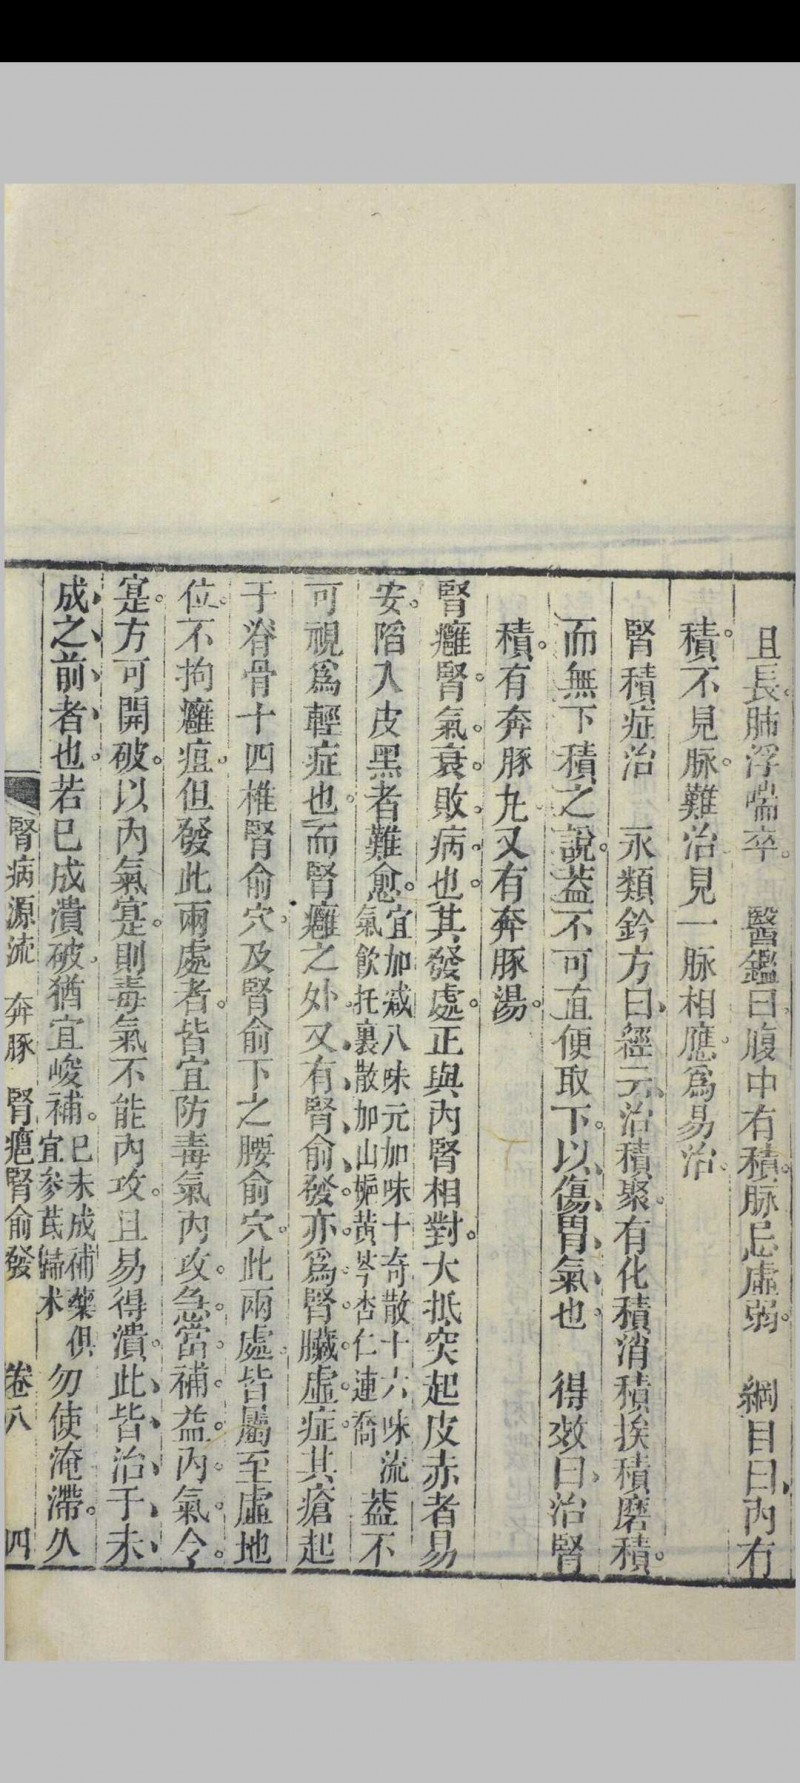 且長肺浮喘卒。　醫鑑曰腹中有積。脉忌虛弱。　綱目曰內有
積。不見脉。難治見一脉相應。爲易治。
腎積症治　永類鈐方曰經云治積聚。有化積消積挨積磨積。
而無下積之說。葢不可直便取下。以傷胃氣也。　得效曰治腎
積。有奔豚丸又有奔豚湯。
腎癰。腎。氣。衰。敗。病。也。其發處。正與內腎相對。大抵突起皮赤者易
安。陷入皮黑者難愈。宜加減八味元加味十奇散十六味流
氣飲托裏散加山梔黃芩杏仁連喬葢不
可視爲輕症也。而腎癰之外又有腎俞發亦爲腎臟虛症其瘡起
于脊骨十四椎腎俞穴。及腎俞下之腰俞穴。此兩處。皆屬至虛地
位。不拘癰疽。但發此兩處者。皆宜防毒氣內攻。急。當。補。益。內。氣。令。
寔。方可開破。以內氣寔。則毒氣不能內攻。且易得潰。此皆治于未
成之前者也。若已成潰破。猶宜峻補。已未成補藥俱
宜參芪歸朮勿使淹滯。久
腎病源流　奔豚　腎癰腎俞發　卷八　四